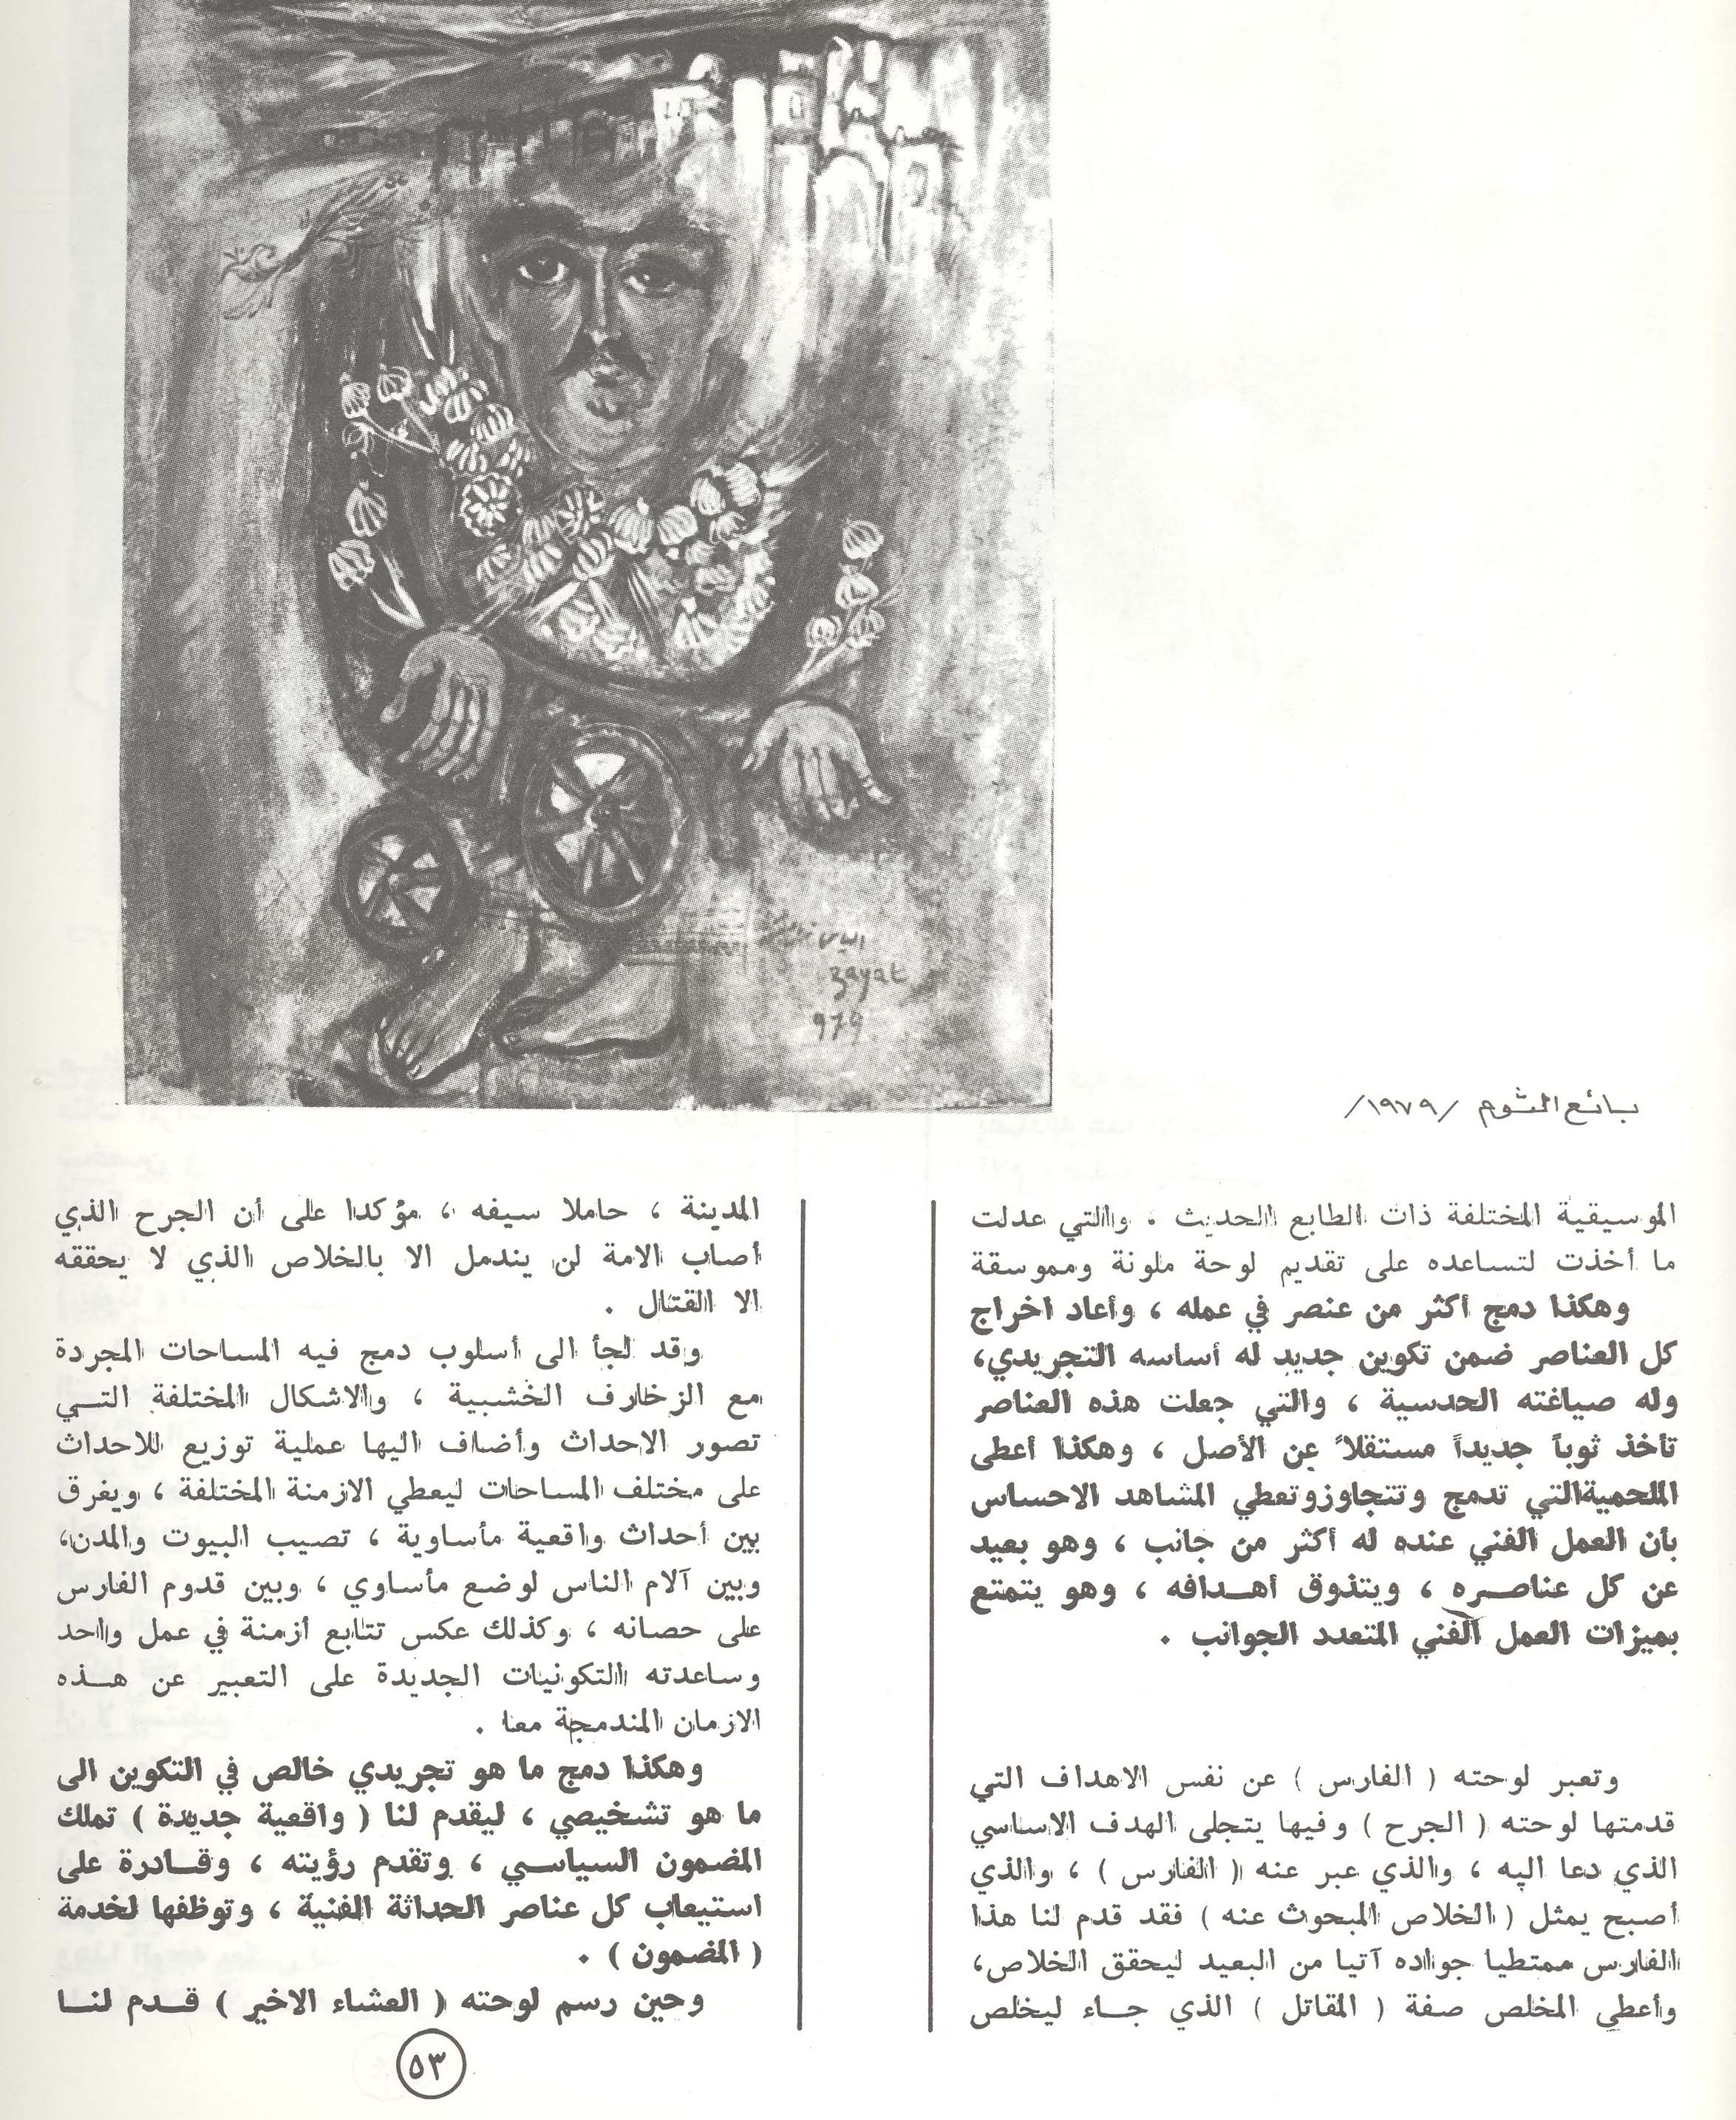 الياس
zayat
979
بائع الثوم /١٩٧٩/
الموسيقية المختلفة ذات الطابع الحديث ، والتي عدلت
ما أخذت لتساعده على تقديم لوحة ملونة ومموسقة
وهكذا دمج أكثر من عنصر في عمله ، وأعاد اخراج
كل العناصر ضمن تكوين جديد له أساسه التجريدي،
وله صياغته الحدسية ، والتي جعلت هذه العناصر
تأخذ ثوباً جديداً مستقلاً عن الأصل ، وهكذا أعطى
الملحمية التي تدمج وتتجاوز وتعطي المشاهد الاحساس
بأن العمل الفني عنده له أكثر من جانب ، وهو بعيد
عن كل عناصـره ، ويتذوق أهـدافه ، وهو يتمتع
بميزات العمل الفني المتعدد الجوانب .
وتعبر لوحته ( الفارس ) عن نفس الاهداف التي
قدمتها لوحته ( الجرح ) وفيها يتجلى الهدف الاساسي
الذي دعا اليه ، والذي عبر عنه ( الفارس ) ، والذي
أصبح يمثل ( الخلاص المبحوث عنه ) فقد قدم لنا هذا
الفارس ممتطيا جواده آتيا من البعيد ليحقق الخلاص،
وأعطي المخلص صفة ( المقاتل ) الذي جـاء ليخلص
المدينة ، حاملا سيفه ، مؤكدا على أن الجرح الذي
أصاب الامة لن يندمل الا بالخلاص الذي لا يحققه
الا القتال .
وقد لجأ الى أسلوب دمج فيه المساحات المجردة
مع الزخارف الخشبية ، والاشكال المختلفة التـي
تصور الاحداث وأضاف اليها عملية توزيع للاحداث
على مختلف المساحات ليعطي الازمنة المختلفة ، ويفرق
بين أحداث واقعية مأساوية ، تصيب البيوت والمدن،
وبين آلام الناس لوضع مأساوي ، وبين قدوم الفارس
على حصانه ، وكذلك عكس تتابع أزمنة في عمل واحد
وساعدته التكونيات الجديدة على التعبير عن هـذه
الازمان المندمجة معا .
وهكذا دمج ما هو تجريدي خالص في التكوين الى
ما هو تشخيصي ، ليقدم لنا ( واقعية جديدة ) تملك
المضمون السياسـي ، وتقدم رؤيته ، وقـادرة على
استيعاب كل عناصر الحداثة الفنية ، وتوظفها لخدمة
( المضمون ) .
وحين رسم لوحته ( العشاء الاخير ) قـدم لنـا
٥٣